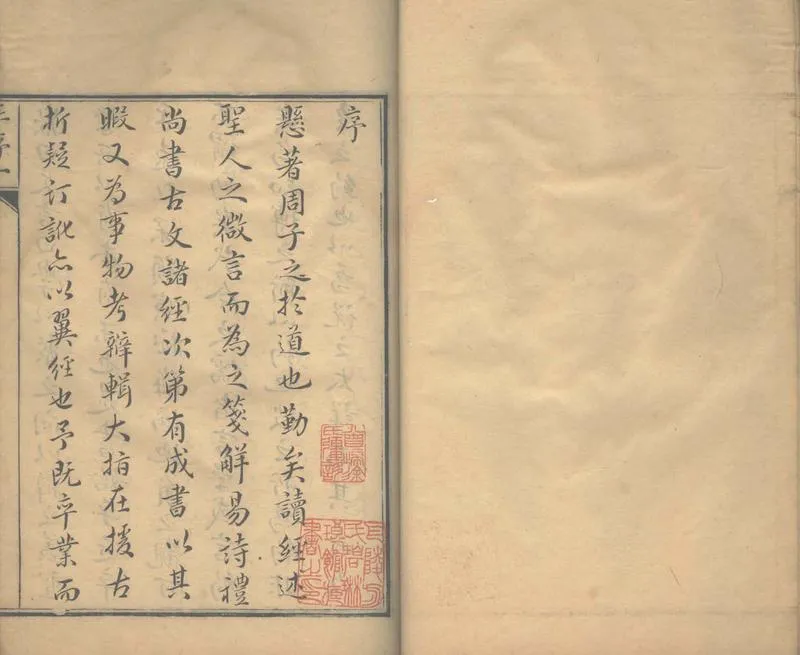 序
懸著周子之於道也勤矣讀經述
聖人之微言而為之箋解易詩禮
尚書古文諸經次第有成書以其
暇又為事物考辯輯大指在援古
析疑訂訛亦以翼經也予既卒業而
序一